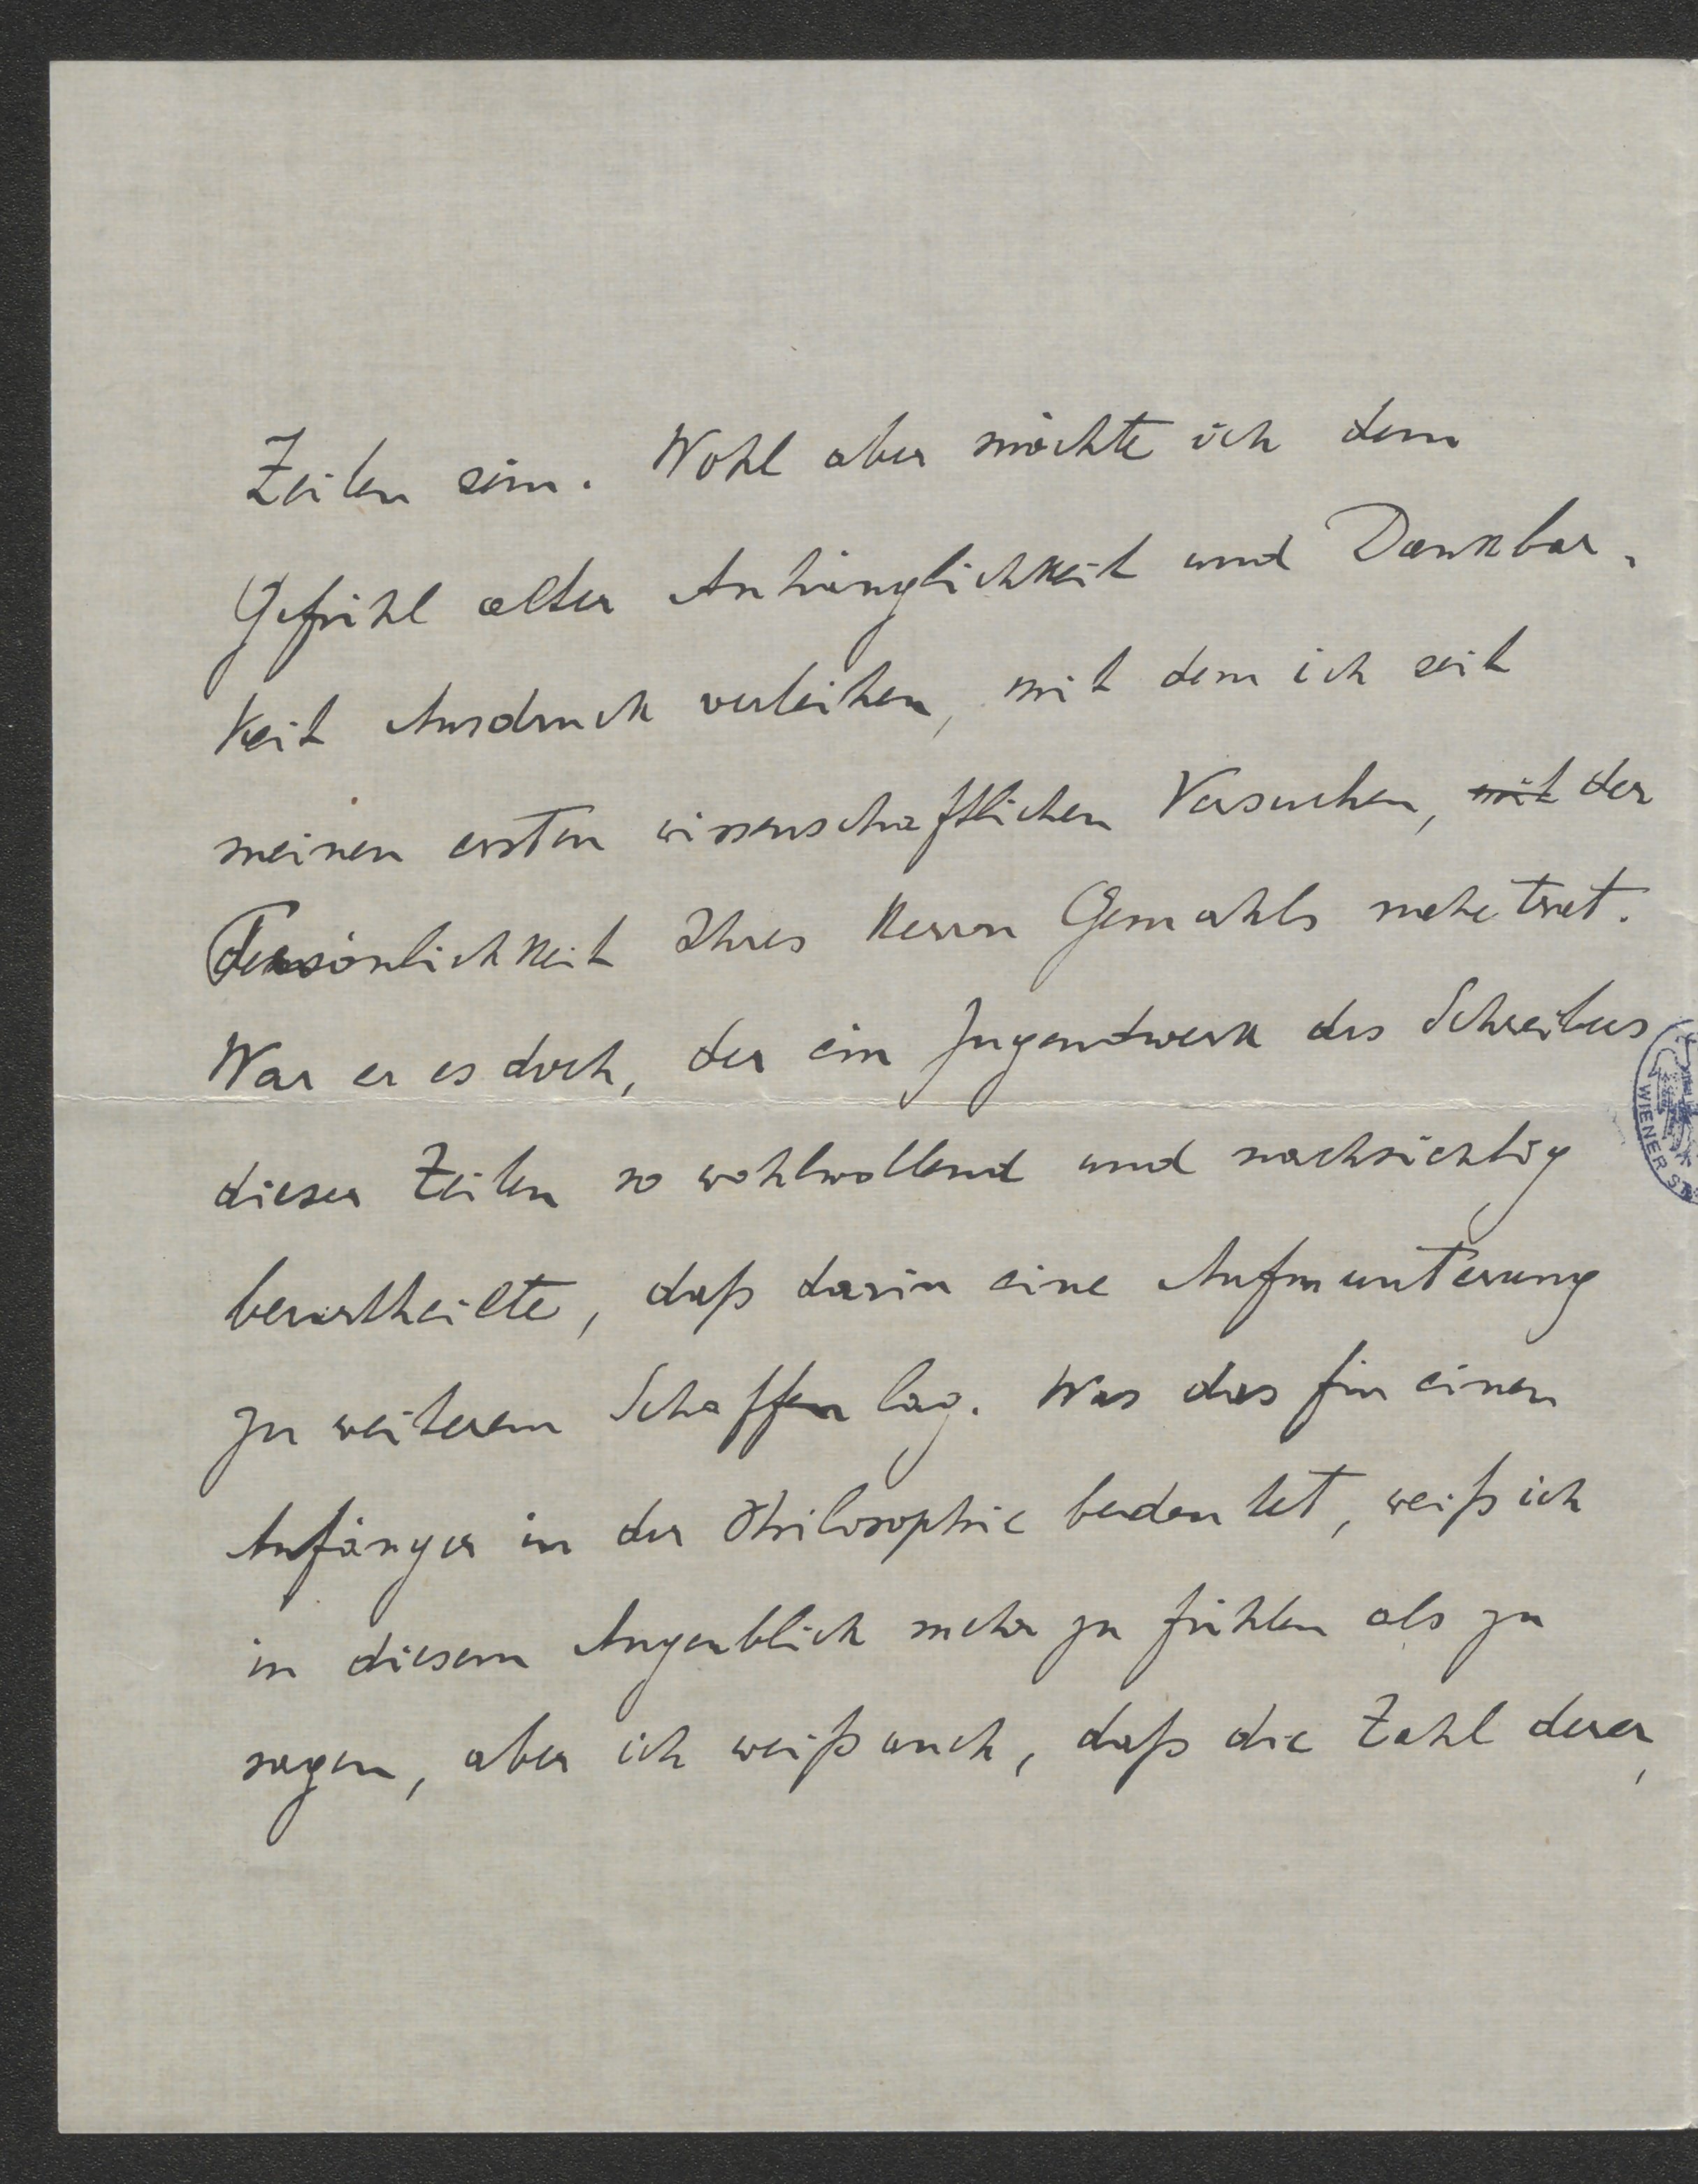 Zeilen sein. Wohl aber möchte ich dem
Gefühl alter Anhänglichkeit und Dankbar-
keit Ausdruck verleihen, mit dem ich seit
meinen ersten wissenschaftlichen Versuchen, mit der
Persönlichkeit Ihres Herrn Gemahls nahetrat.
War er es doch, der ein Jugendwerk des Schreibers
dieser Zeilen so wohlwollend und nachsichtig
beurtheilte, daß darin eine Aufmunterung
zu weiterem Schaffen lag. Was das für einen
Anfänger in der Philosophie bedeutet, weiß ich
in diesem Augenblick mehr zu fühlen als zu
sagen, aber ich weiß auch, daß die Zahl derer,
WIENER